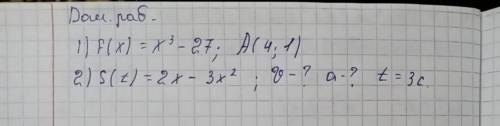 Дом. раб.
1) F(x) = x³ - 27; A(4; 1)
2) S(t) = 2x - 3x² ; υ - ? a - ? t = 3c.